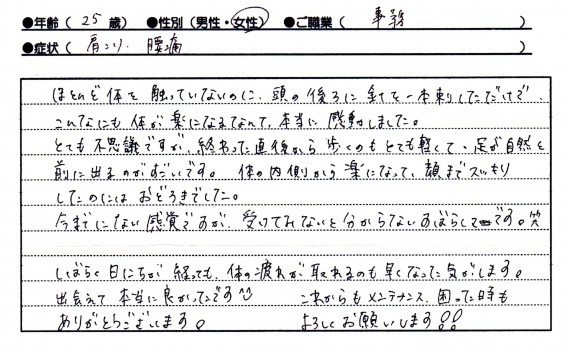 ●年齢（ 25 歳） ●性別（男性・女性） ●ご職業（ 事務 ）
●症状（ 肩こり、腰痛 ）
ほとんど体を触っていないのに、頭の後ろに針を一本刺しただけで、
こんなにも体が楽になるなんて、本当に感動しました。
とても不思議ですが、終わった直後から歩くのもとても軽くて、足が自然と
前に出るのがすごいです。体の内側から楽になって、顔までスッキリ
したのにはおどろきでした。
今までにない感覚ですが、受けてみないと分からないすばらしさです。笑
しばらく日にちが経っても、体の疲れが取れるのも早くなった気がします。
出会えて本当に良かったです^^ これからもメンテナンス、困った時も
ありがとうございます。 よろしくお願いします!!